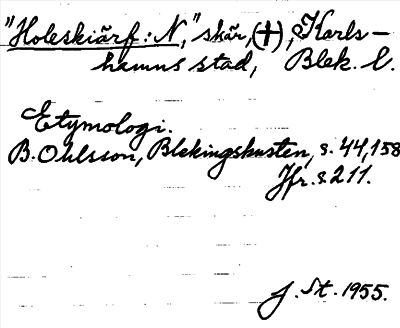 "Holeskiärf: N," skär, (+), Karls-
hamns stad, Blek. l.
Etymologi.
B. Ohlsson, Blekingskusten, s. 44, 158
Jfr. s. 211.
J. St. 1955.